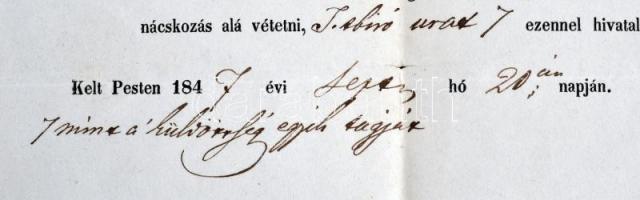 nácskozás alá vétetni, T. biró urat 7 ezennel hivatal
Kelt Pesten 1847 évi Sept. hó 20;án napján.
7 mint a' küldöttség egyik tagját